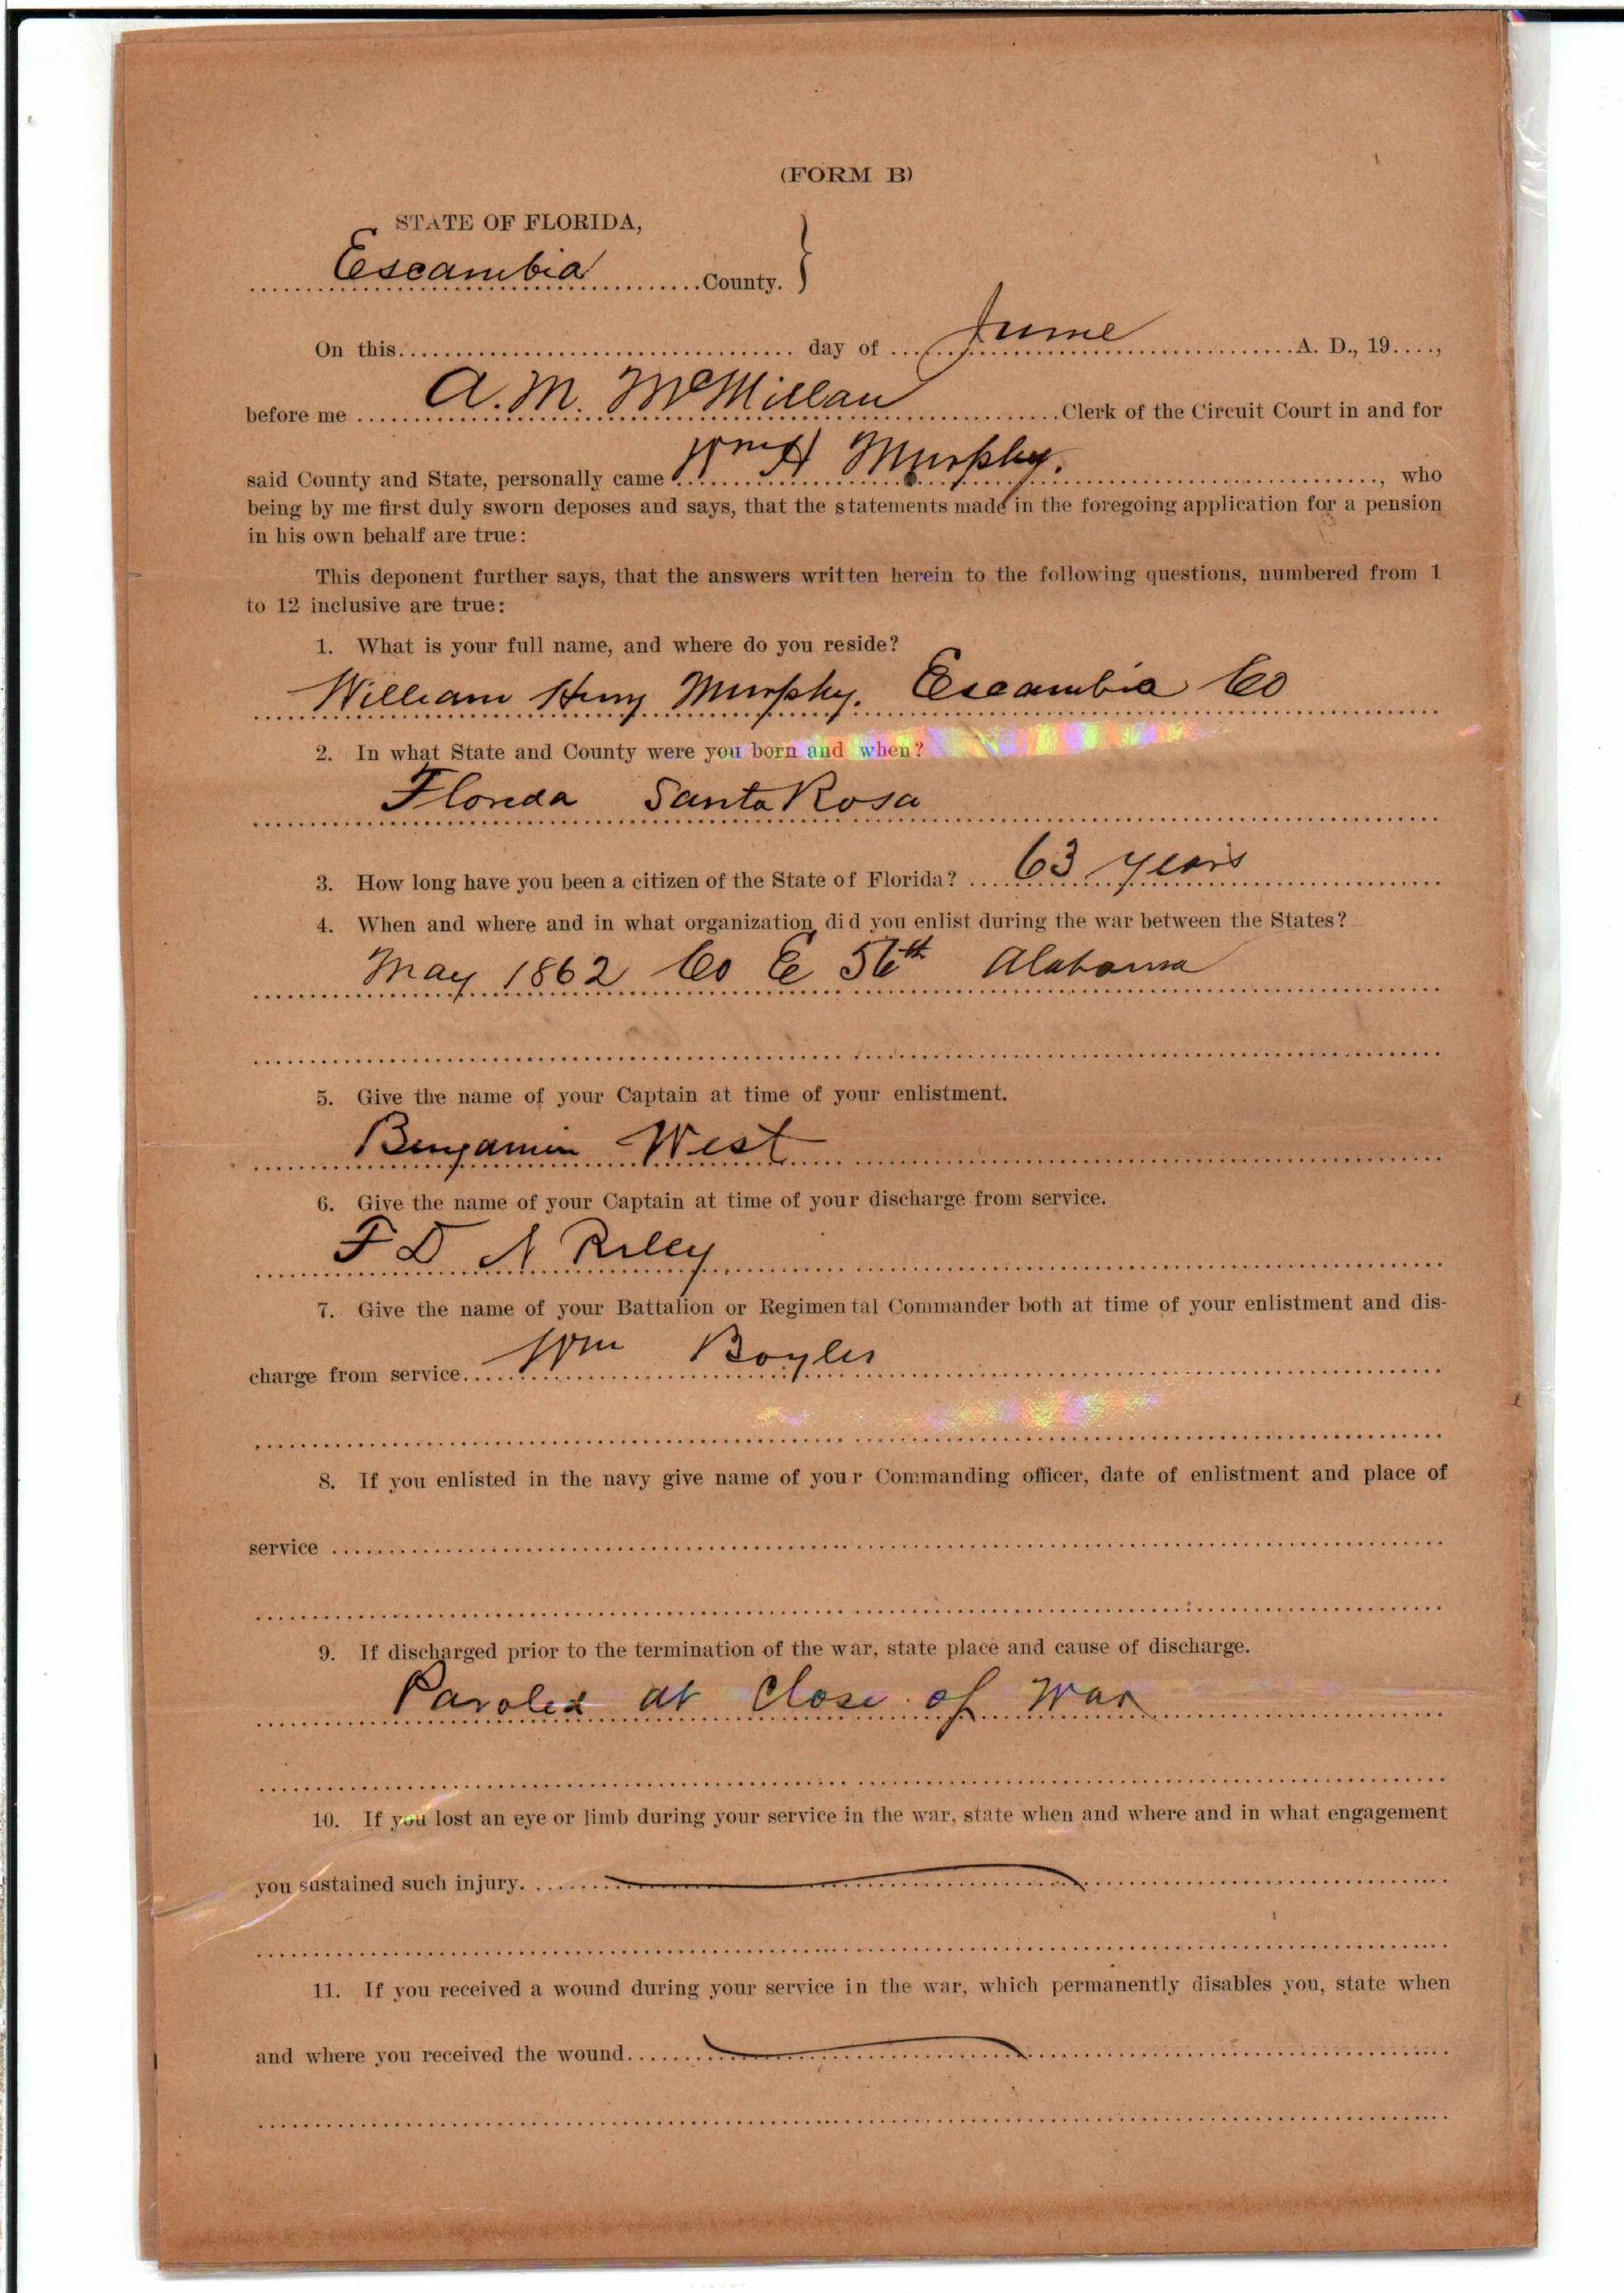 (FORM B)
STATE OF FLORIDA,
Escambia County. }
On this day of June A. D., 19....,
before me A. M. McMillan Clerk of the Circuit Court in and for
said County and State, personally came Wm H Murphy. , who
being by me first duly sworn deposes and says, that the statements made in the foregoing application for a pension
in his own behalf are true:
This deponent further says, that the answers written herein to the following questions, numbered from 1
to 12 inclusive are true:
1. What is your full name, and where do you reside?
William Henry Murphy. Escambia Co
2. In what State and County were you born and when?
Florida Santa Rosa
3. How long have you been a citizen of the State of Florida? 63 years
4. When and where and in what organization did you enlist during the war between the States?
May 1862 Co E 56th Alabama
5. Give the name of your Captain at time of your enlistment.
Benjamin West
6. Give the name of your Captain at time of your discharge from service.
F D N Riley
7. Give the name of your Battalion or Regimental Commander both at time of your enlistment and dis-
charge from service. Wm Boyles
8. If you enlisted in the navy give name of your Commanding officer, date of enlistment and place of
service
9. If discharged prior to the termination of the war, state place and cause of discharge.
Paroled at Close of War
10. If you lost an eye or limb during your service in the war, state when and where and in what engagement
you sustained such injury.
11. If you received a wound during your service in the war, which permanently disables you, state when
and where you received the wound.